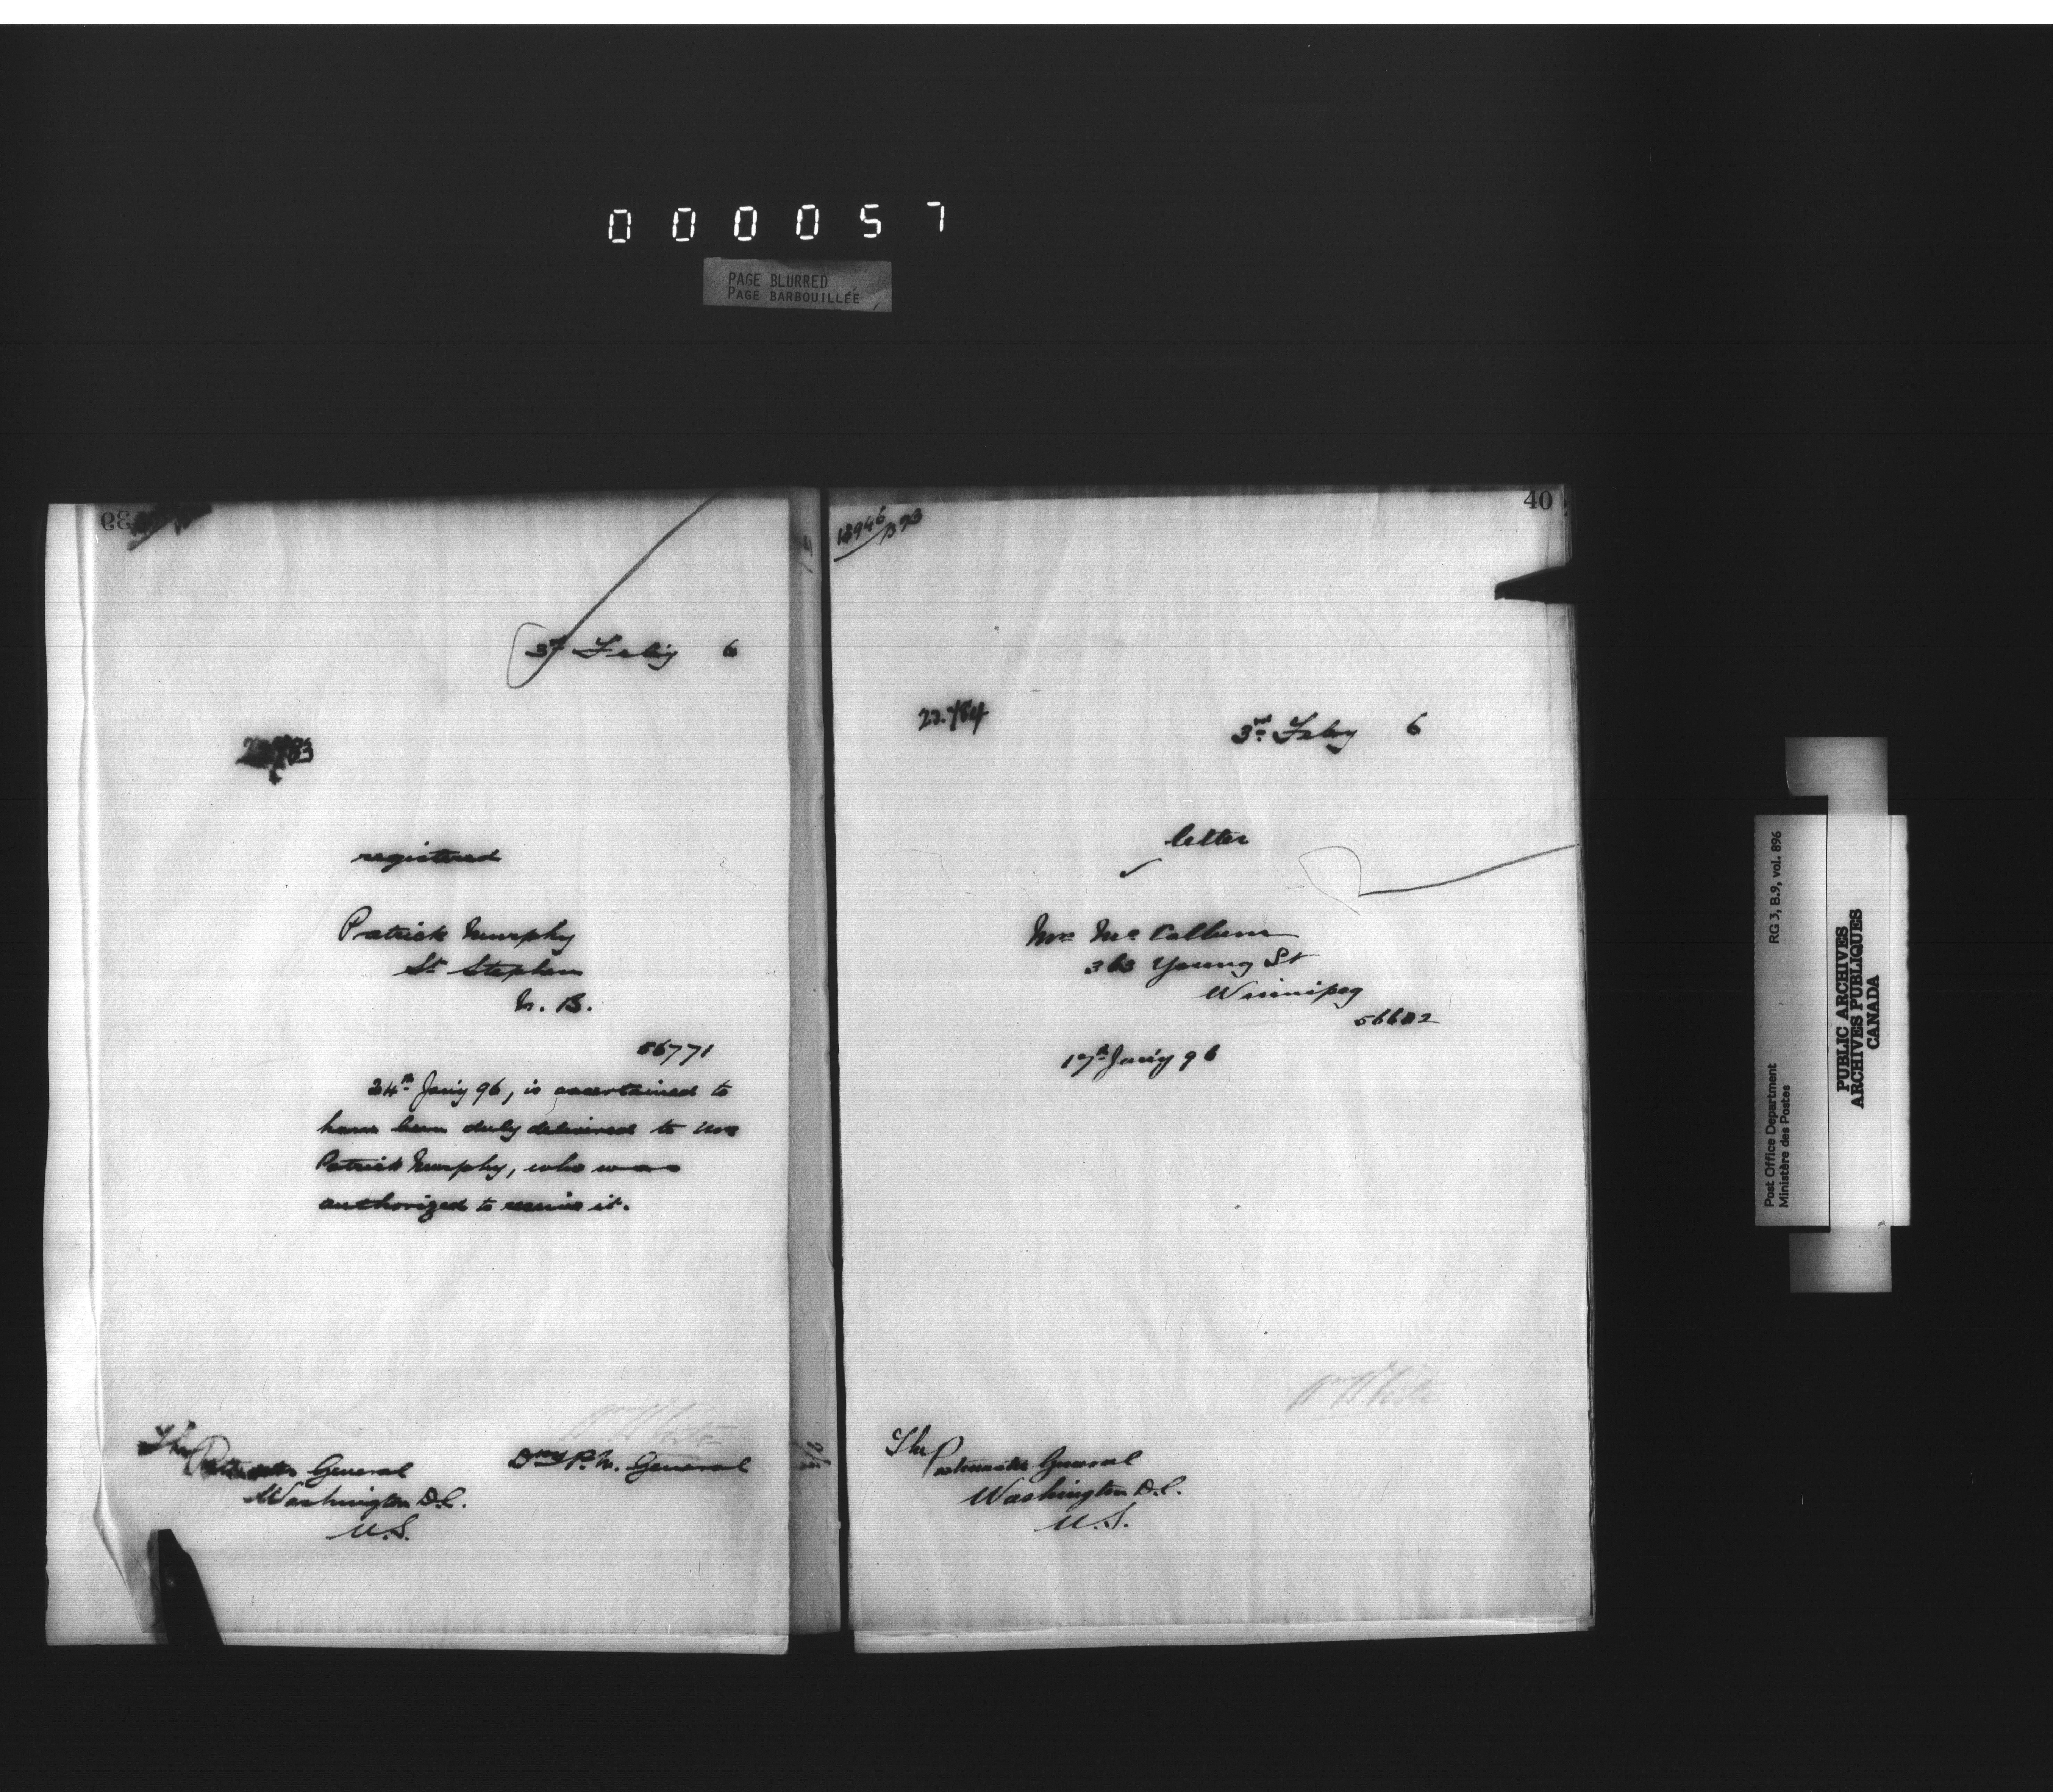 000057
PAGE BLURRED
PAGE BARBOUILLÉE
39
3rd Feby 6
registered
Patrick Murphy
St Stephen
N. B.
56771
24th Jan'y 96, is ascertained to
have been duly delivered to Mrs
Patrick Murphy, who was
authorized to receive it.
Wm White
Dny P. M. General
The Postmaster General
Washington D.C.
U.S.
40
22.784
3rd Feby 6
letter
Mrs McCallum
363 Young St
Winnipeg
17th Jan'y 96
Wm White
The Postmaster General
Washington D.C.
U.S.
Post Office Department
Ministère des Postes
RG 3, B.9, vol. 896
PUBLIC ARCHIVES
ARCHIVES PUBLIQUES
CANADA